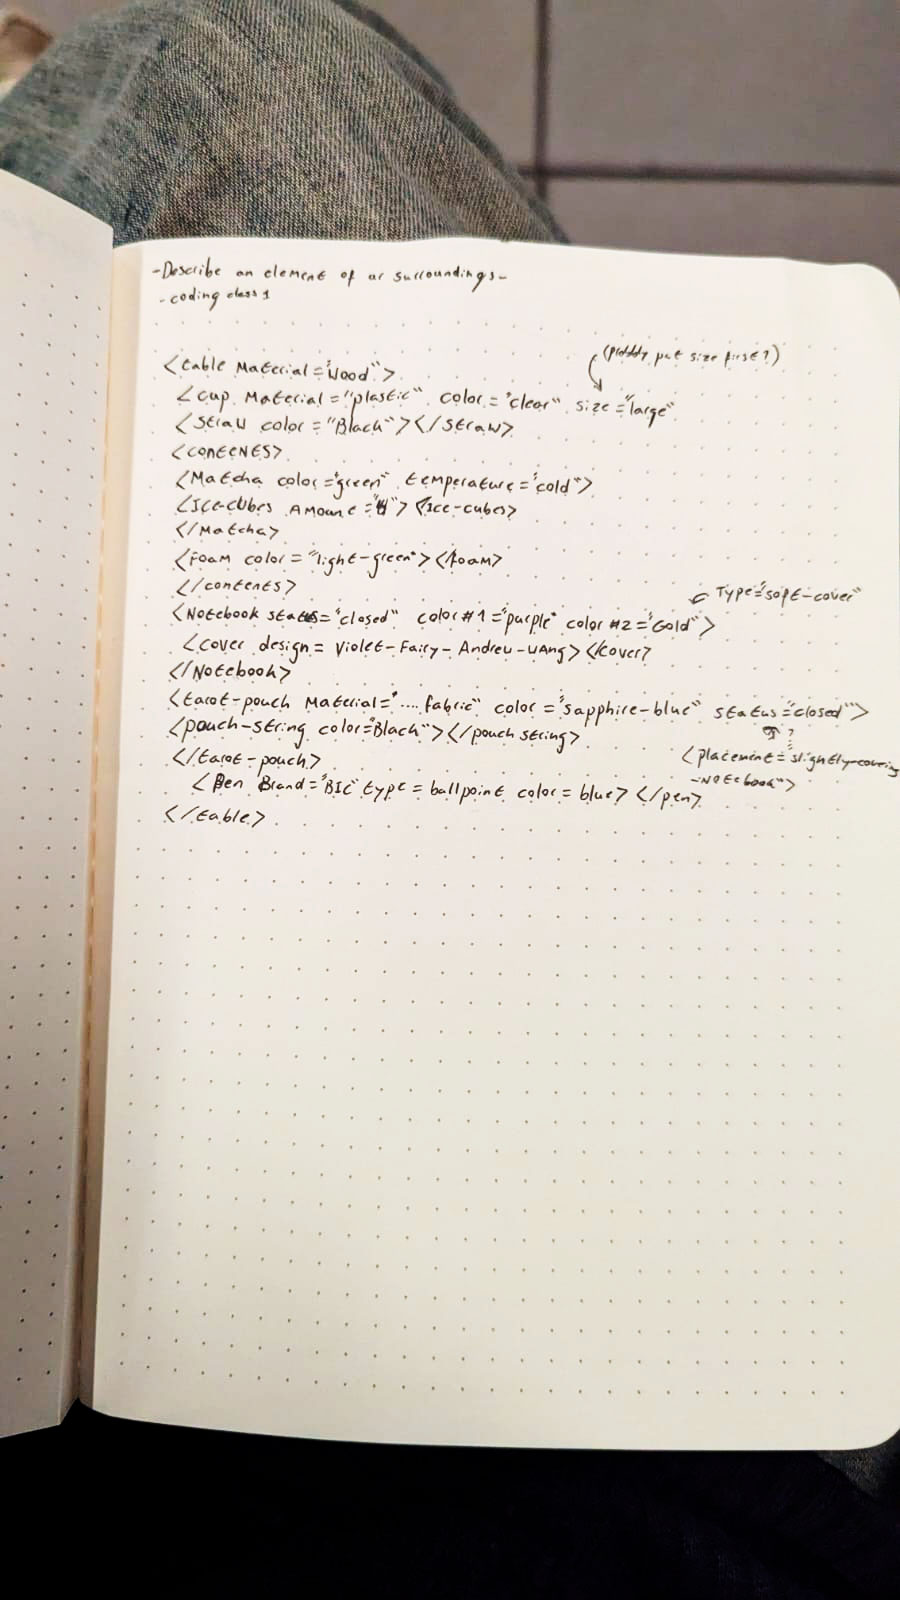 -Describe an element of ar surroundings-
- coding class 1
(put size first?)
<table Material="Wood">
<cup Material="plastic" color="clear" size="large"
<straw color="Black"></straw>
<contents>
<Matcha color="green" temperature="cold">
<Ice-cubes Amount="4"> <Ice-cubes>
</Matcha>
<Foam color="light-green"></foam>
</contents>
Type="soft-cover"
<Notebook status="closed" color#1="purple" color#2="Gold">
<cover design= Violet-Fairy-Andreu-UAng></cover>
</Notebook>
<tarot-pouch Material=".... fabric" color="sapphire-blue" status="closed">
<pouch-string color="Black"></pouch string>
?
<placement="slightly-covering
-Notebook">
</tarot-pouch>
<Pen Brand="BIC" type=ballpoint color=blue> </pen>
</table>